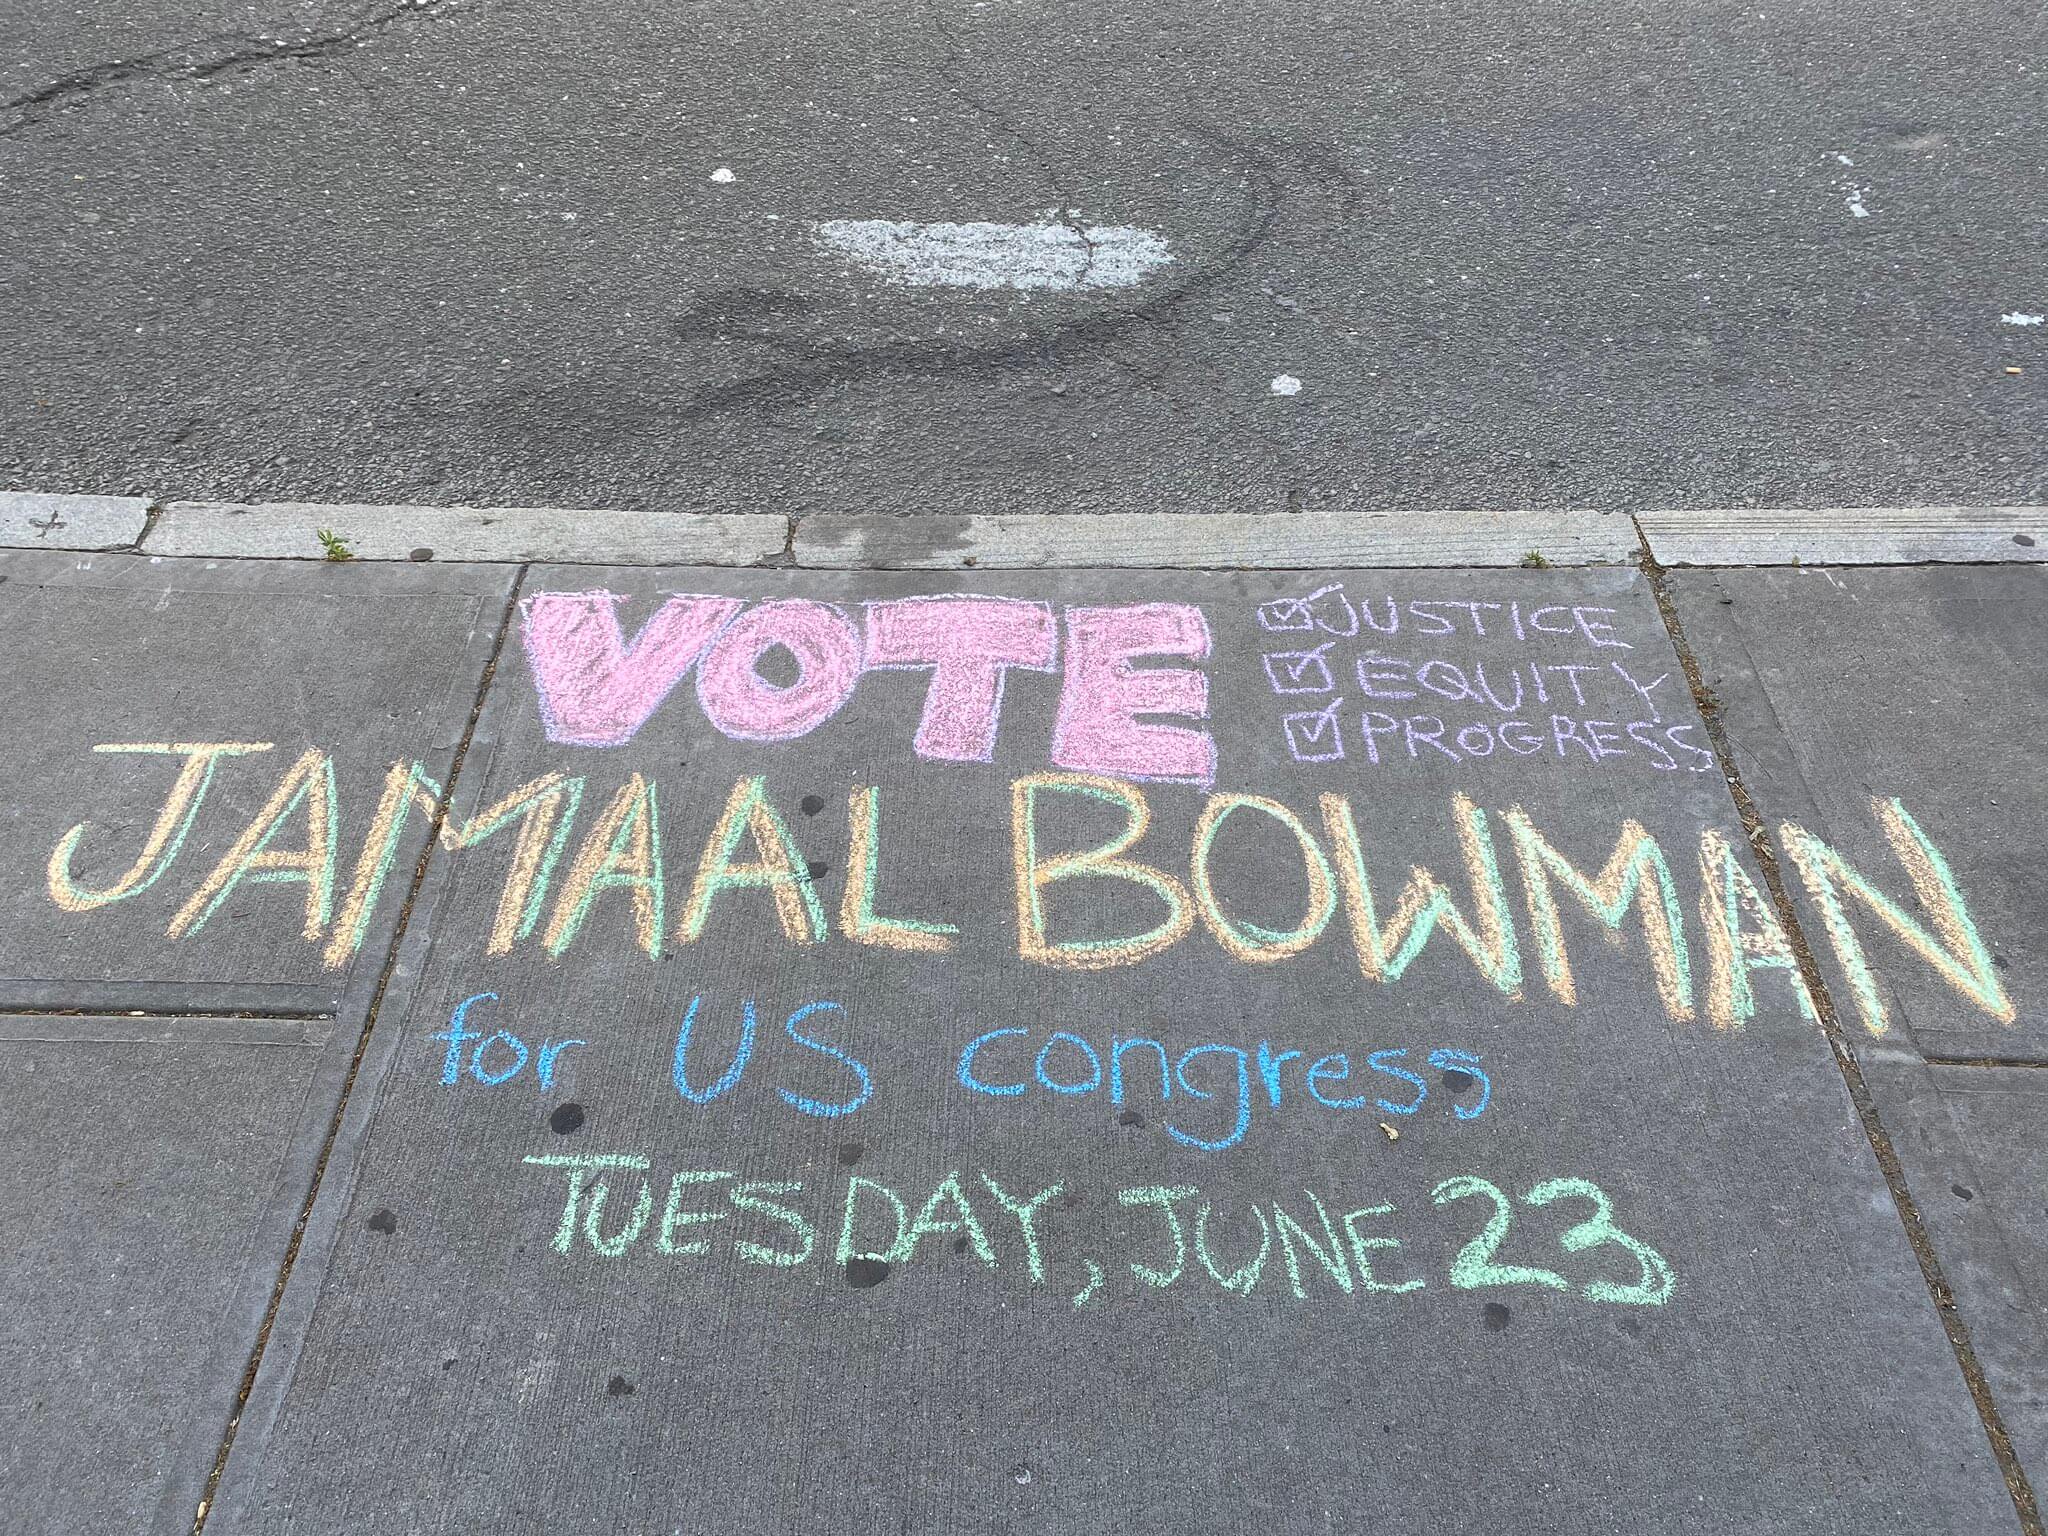 VOTE
JUSTICE
EQUITY
PROGRESS
JAMAAL BOWMAN
for US congress
TUESDAY, JUNE 23